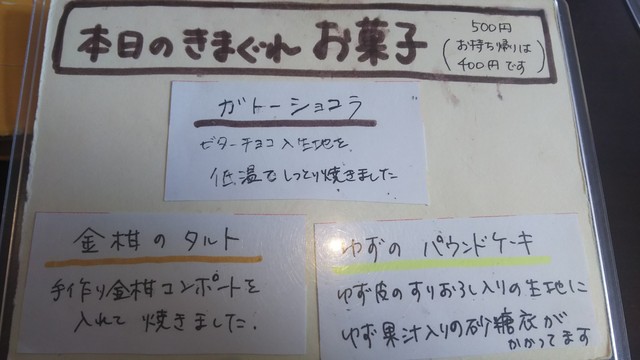 本日のきまぐれ お菓子
500円
(お持ち帰りは
400円です)
ガトーショコラ
ビターチョコ入生地を、
低温でしっとり焼きました
金柑のタルト
手作り金柑コンポートを
入れて焼きました.
ゆずの パウンドケーキ
ゆず皮のすりおろし入りの生地に
ゆず果汁入りの砂糖衣が
かかってます